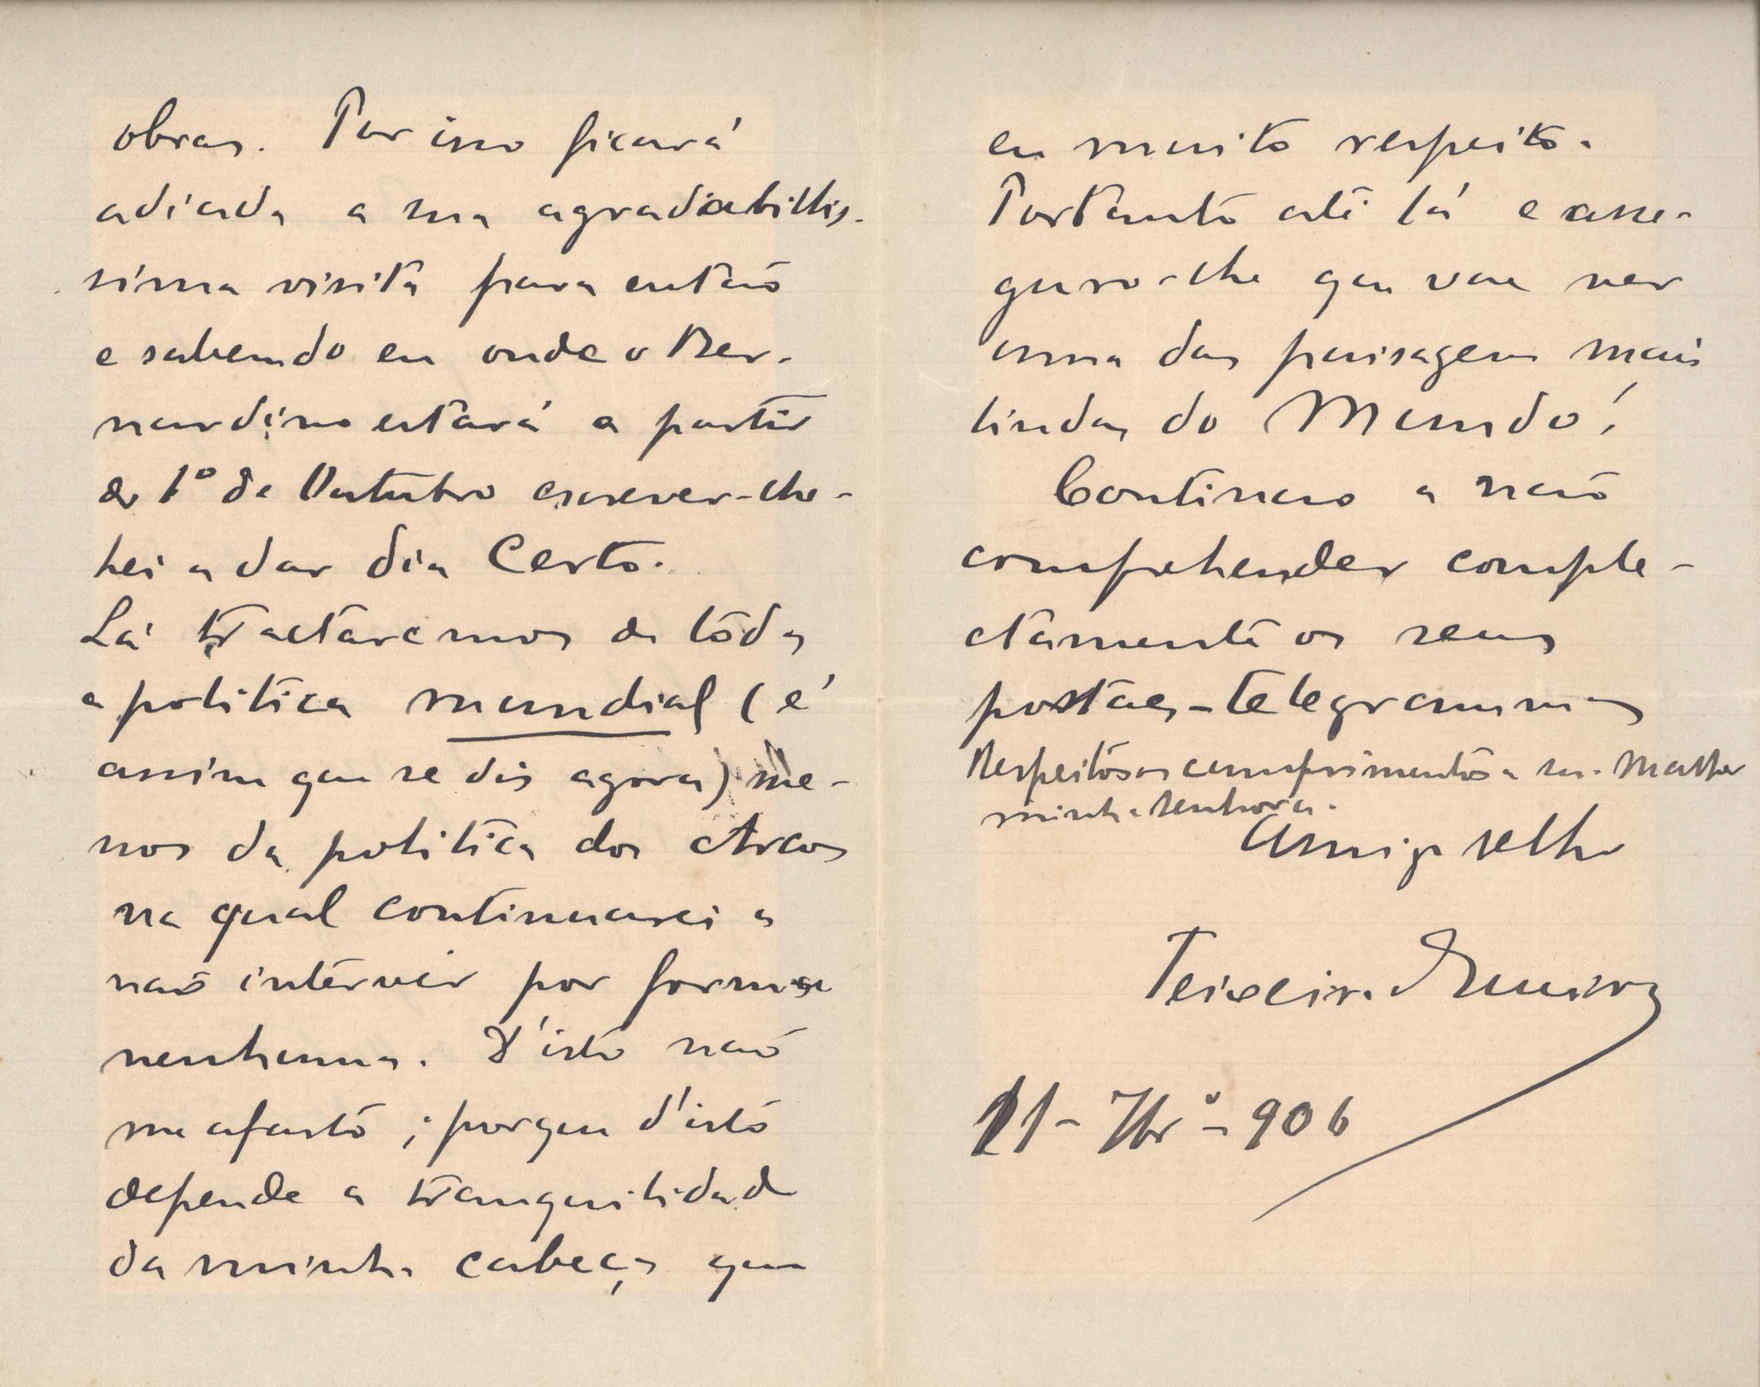 obras. Por isso ficará
adiada a sua agradabillis-
sima visita para então
e sabendo eu onde o Ber-
nardino estará a partir
de 1º de Outubro escrever-lhe-
hei a dar dia certo.
Lá tractaremos de tôda
a politica mundial (é
assim que se diz agora) me-
nos da politica dos Arcos
na qual continuarei a
não intervir por forma
nenhuma. D'isto não
me afasto; porque d'isto
depende a tranquilidade
da minha cabeça que
eu muito respeito.
Portanto até lá e asse-
guro-lhe que vae ver
uma das paisagens mais
lindas do Mundo!
Continuo a não
comprehender comple-
ctamente os seus
postaes-telegrammas
Respeitosos cumprimentos a sua Mulher
minha Senhora.
Amigo velho
Teixeira de Queiroz
21-7brº-906